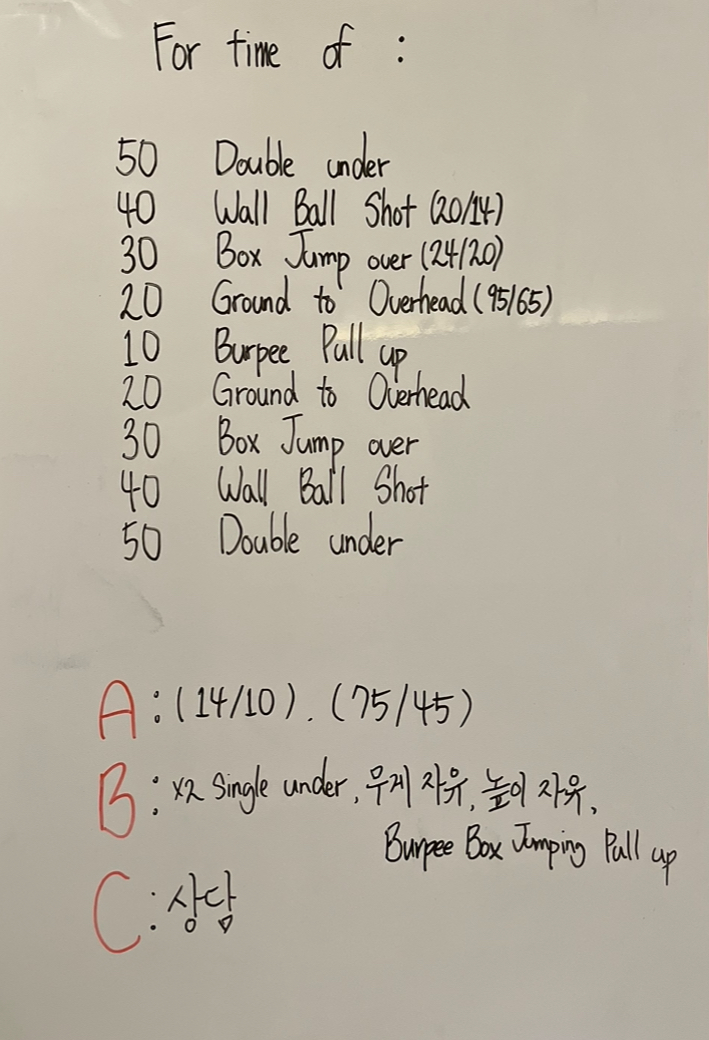 For time of :
50 Double under
40 Wall Ball Shot (20/14)
30 Box Jump over (24/20)
20 Ground to Overhead (95/65)
10 Burpee Pull up
20 Ground to Overhead
30 Box Jump over
40 Wall Ball Shot
50 Double under
A : (14/10). (75/45)
B : x2 Single under, 무게 자유, 높이 자유,
Burpee Box Jumping Pull up
C : 상담